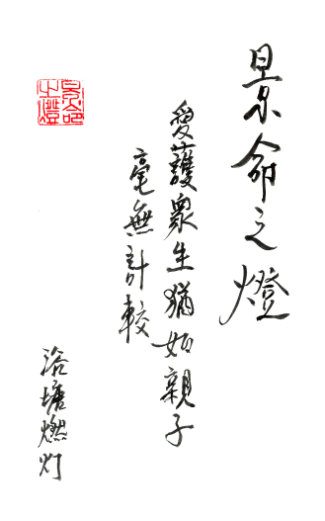 景命之燈
愛護眾生猶如親子
毫無計較
塘燃灯
景命
之燈